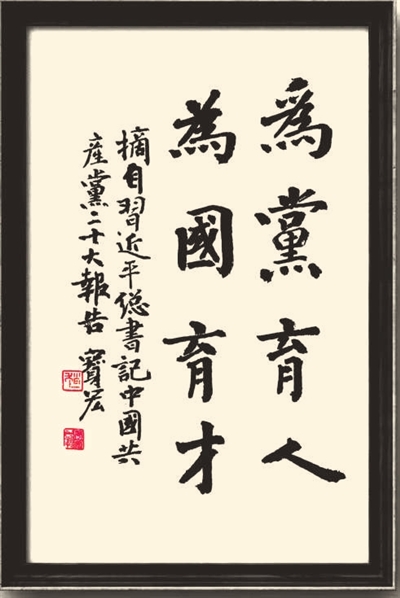 爲黨育人
為國育才
摘自習近平總書記中國共
產黨二十大報告 寶宏